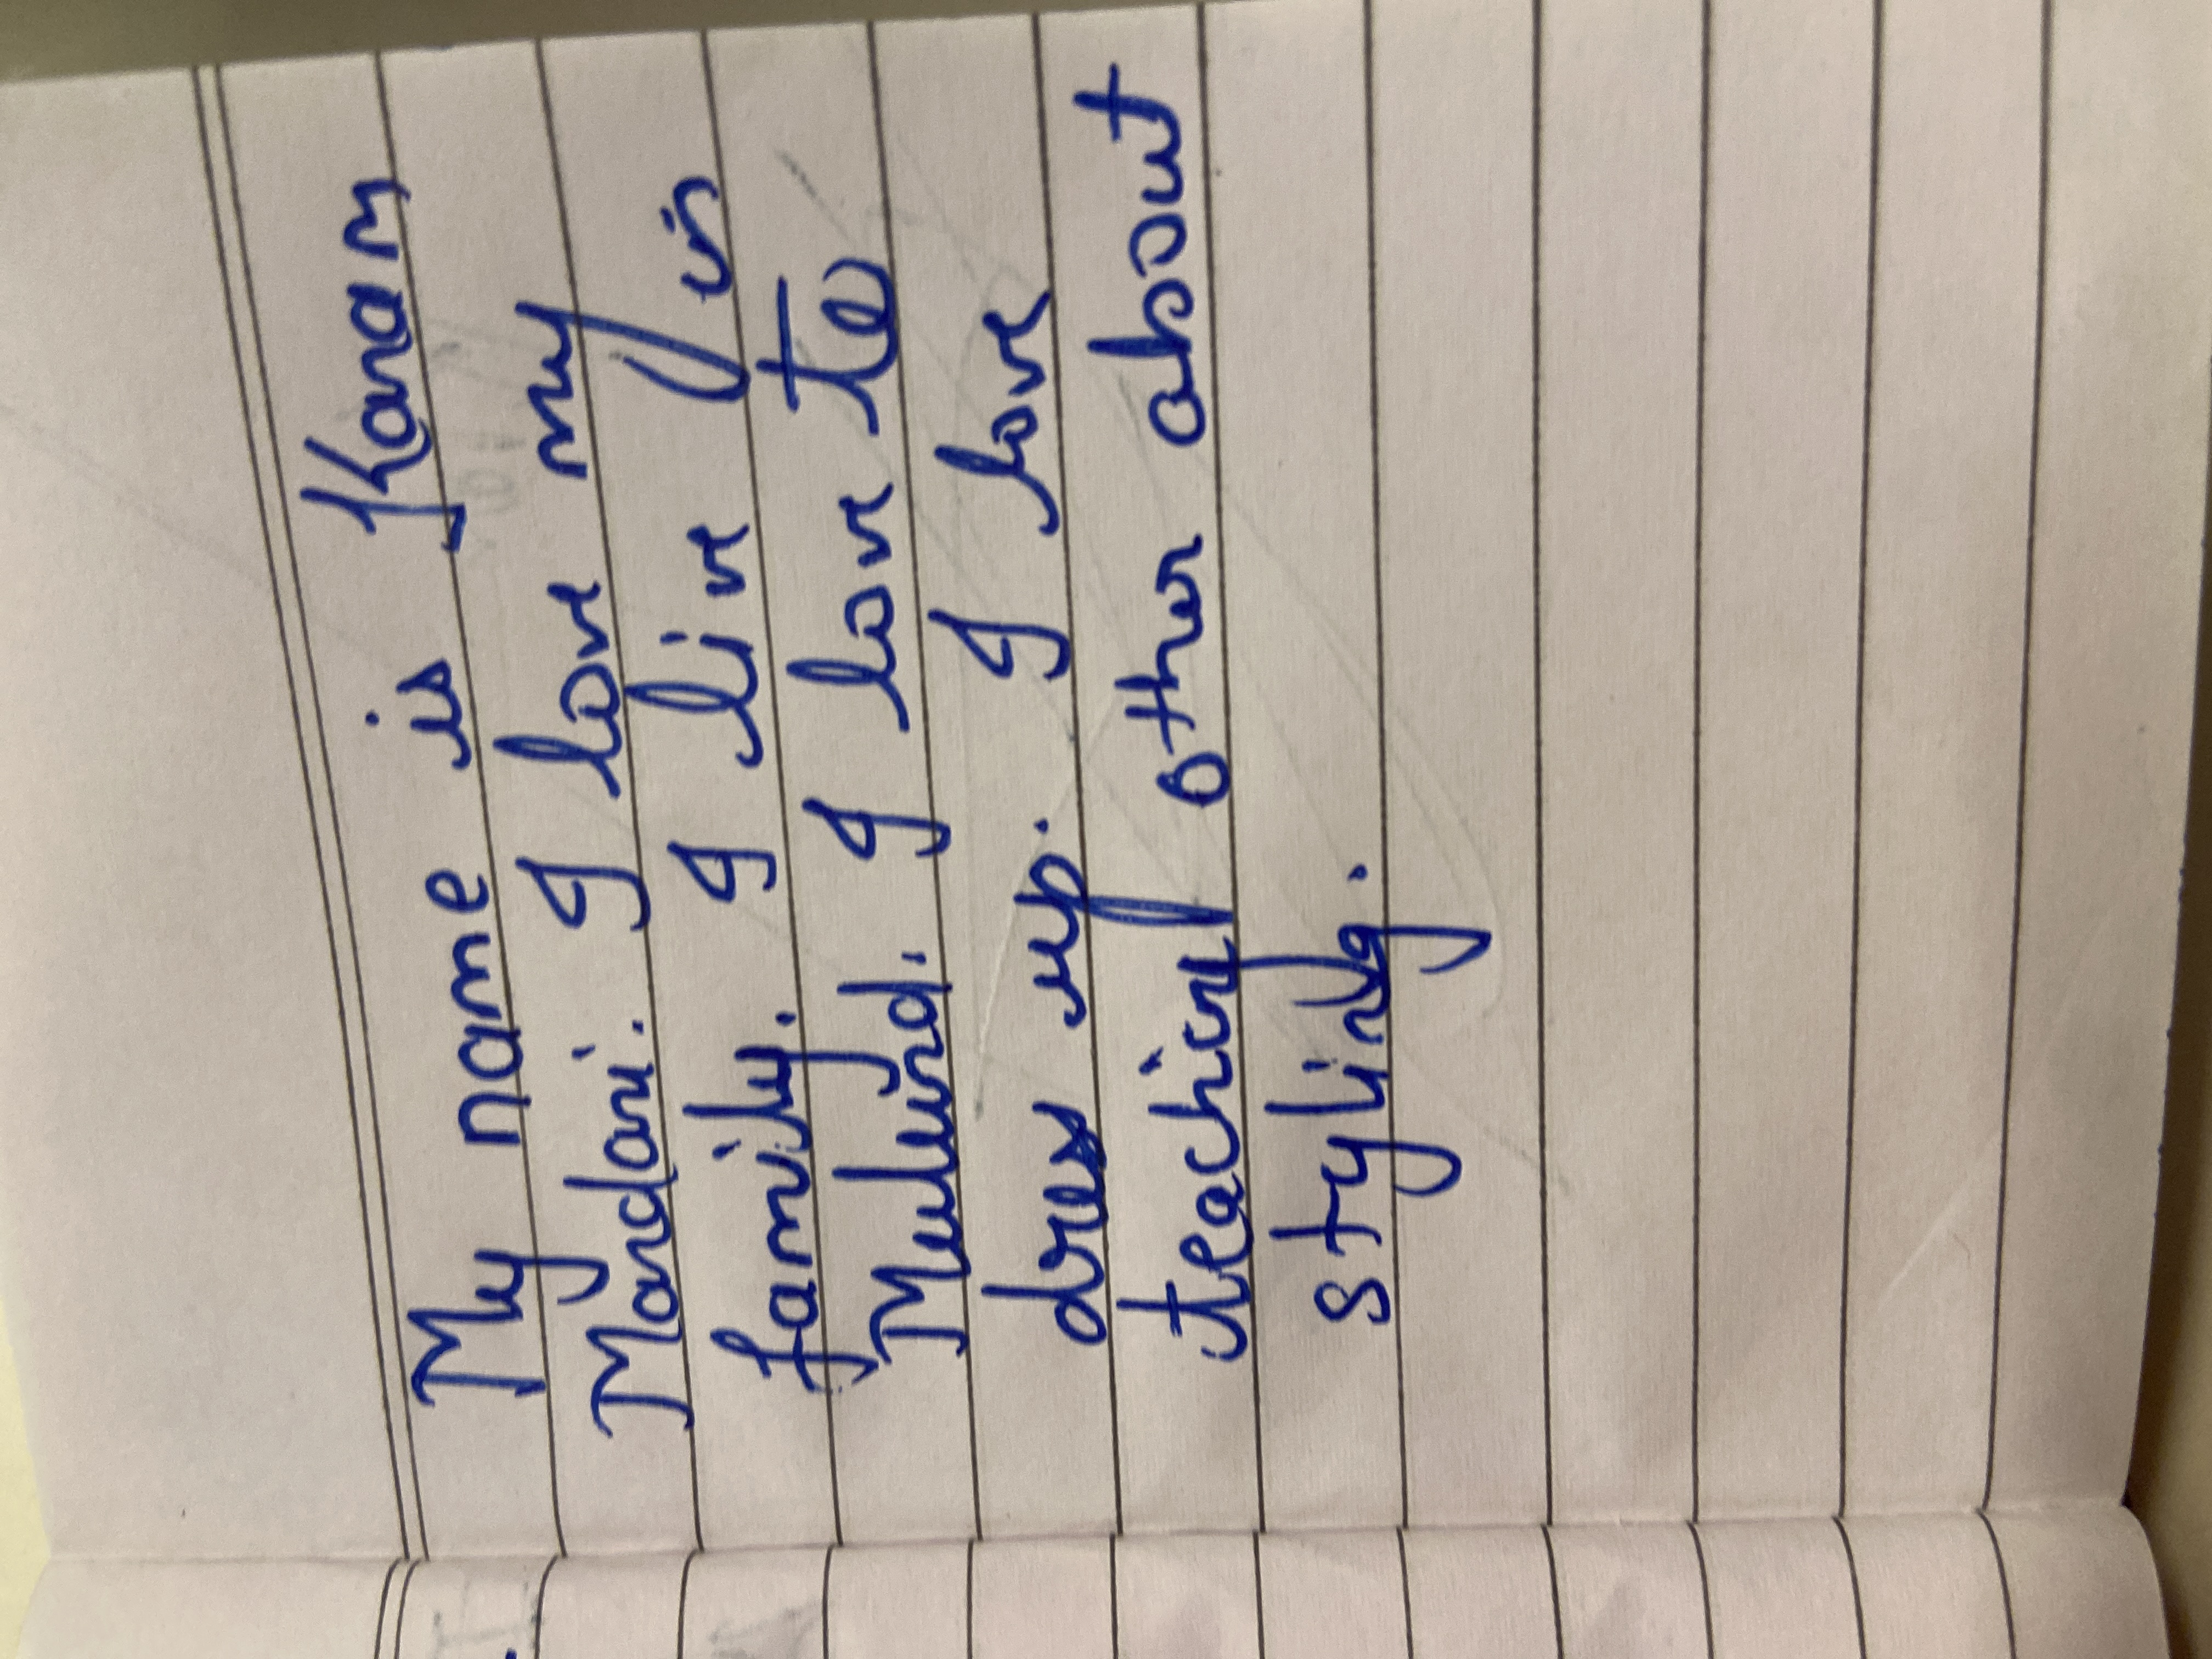 My name is Karam
Mandani. I love my
family. I live in
Mulund. I love to
dress up. I love
teaching other about
styling.